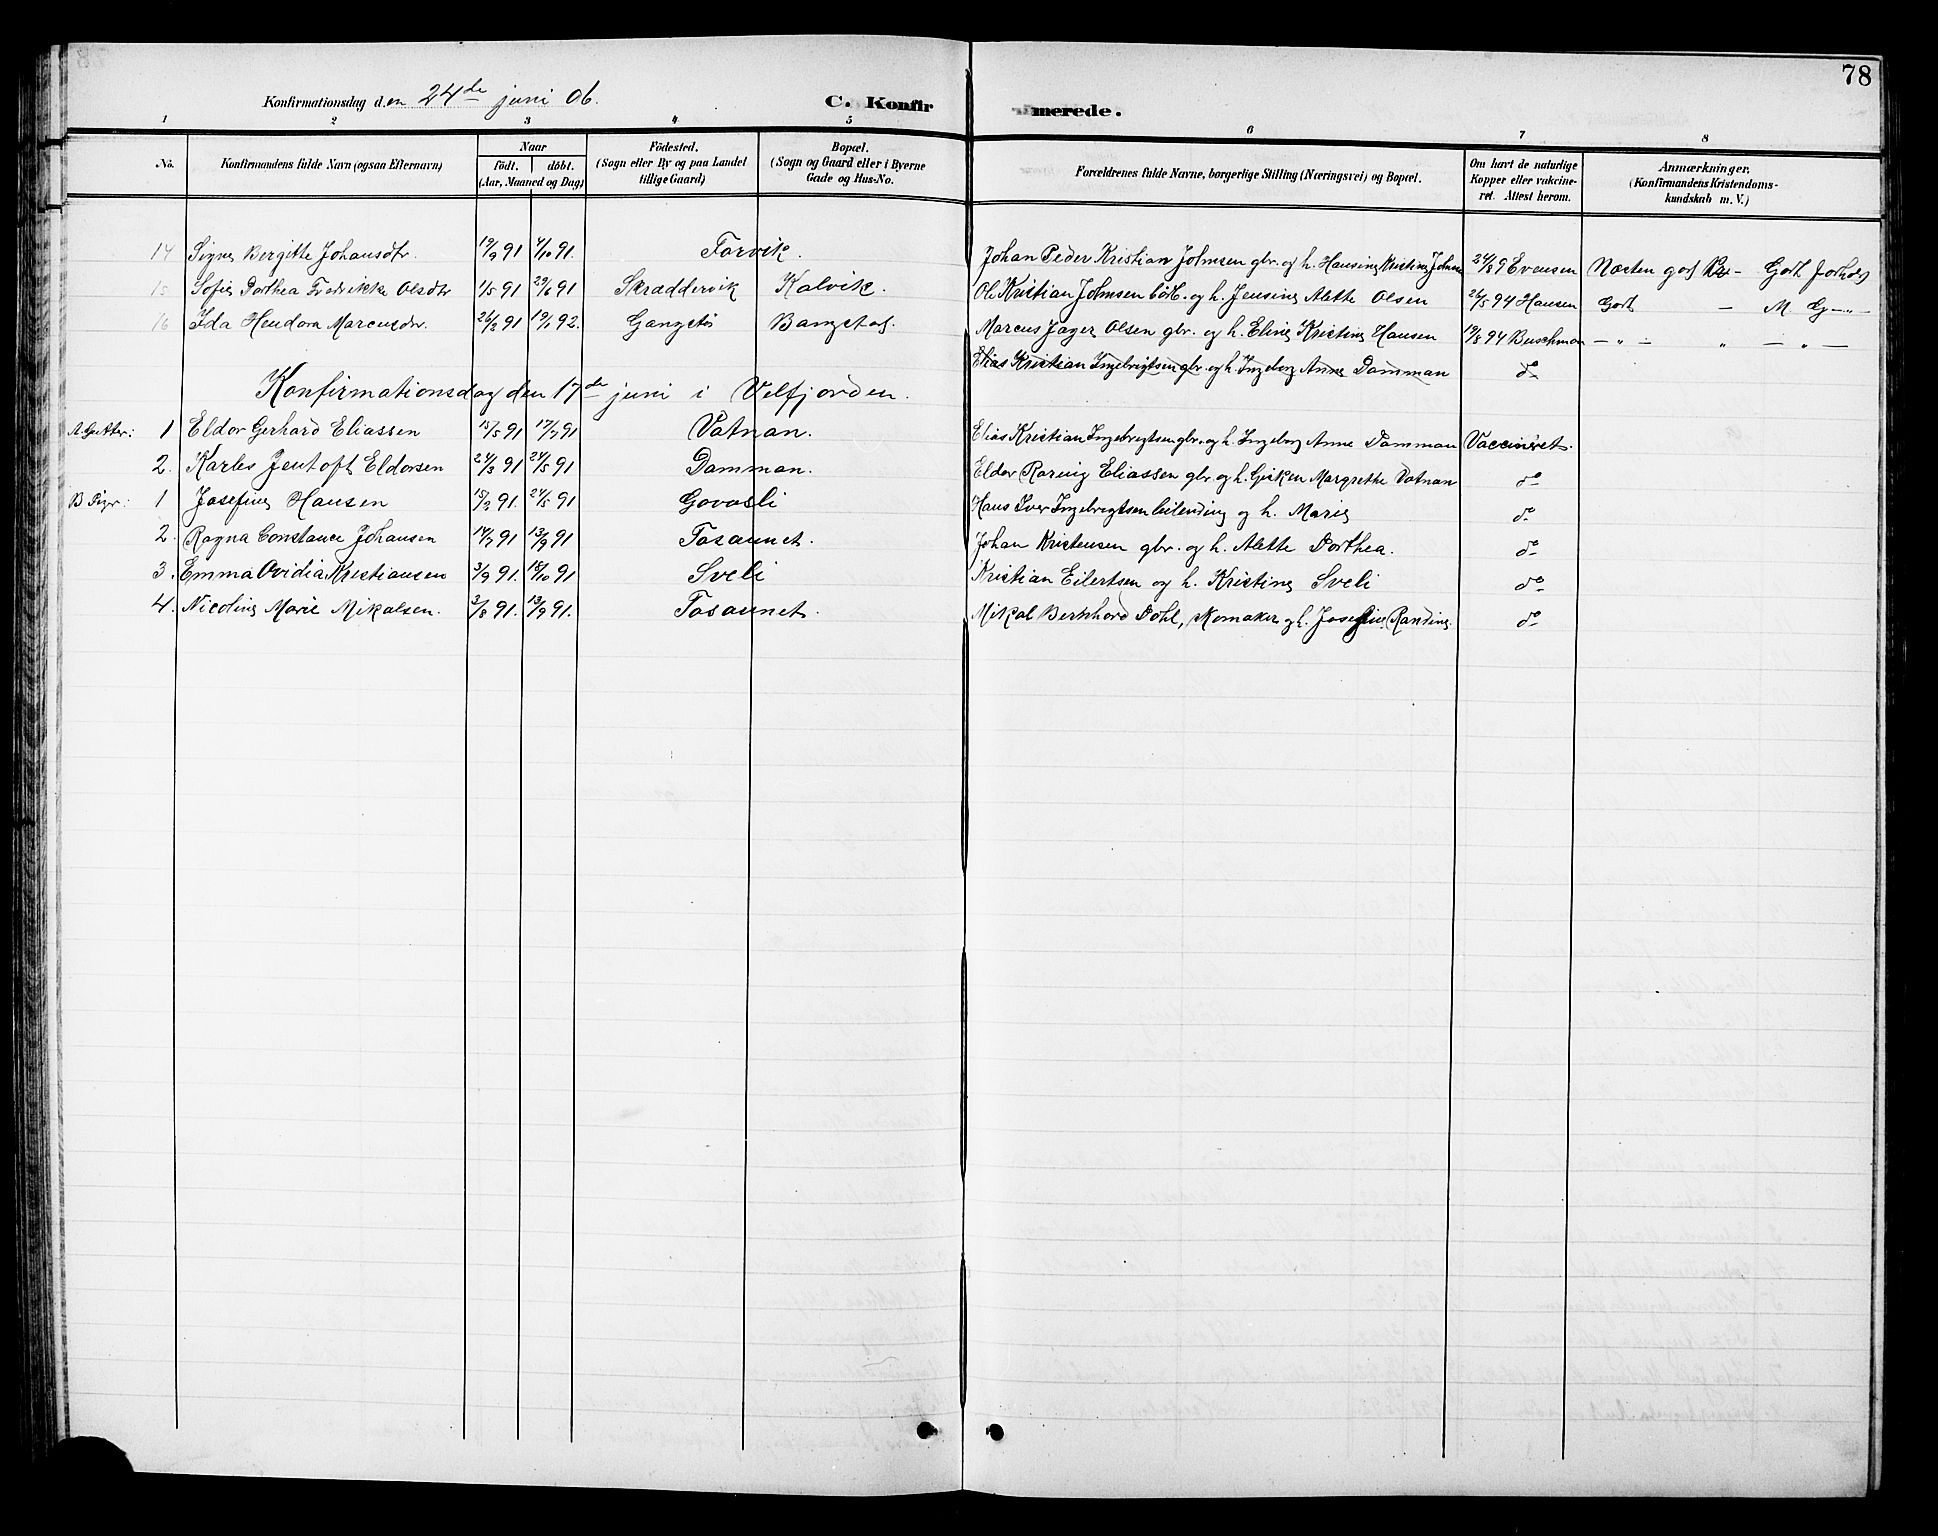 78
Konfirmationsdag den 24de juni 06. C. Konfirmerede.
1 2 3 4 5 6 7 8
No. Konfirmandens fulde Navn (ogsaa Efternavn) Naar födt. döbt. (Aar, Maaned og Dag) Födested. (Sogn eller By og paa Landet tillige Gaard) Bopæl. (Sogn og Gaard eller i Byerne Gade og Hus-No. Forældrenes fulde Navne, borgerlige Stilling (Næringsvei) og Bopæl. Om havt de naturlige Kopper eller vakcineret. Attest herom. Anmærkninger. (Konfirmandens Kristendomskundskab m. V.)
14 Signe Bergitte Johansdtr. 19/9 91 4/10 91. Forvik. Johan Peder Kristian Johnsen gbr. og h. Hansine Kristine Evensen Næsten godt Godt Forhold
15 Sofie Dorthea Fredrikke Olsdtr 1/5 91 29/6 91 Skræddervik Kalvik. Ole Kristian Johnsen og h. Jensine Alette Olsen 26/5 94 Hansen Godt — M G —"—
16 Ida Hendora Marcusdtr. 26/2 91 19/1 92. Gangstø Bangstad. Marcus Jager Olsen gbr. og h. Eline Kristine Hansen 19/8 94 Buschman — " — " — " —
Elias Kristian Ingebrigtsen gbr. og h. Ingeborg Anne Damman do
Konfirmationsdag den 17de juni i Velfjorden.
A. Gutter: 1 Eldor Gerhard Eliassen 15/5 91 17/7 91 Vatnan. Elias Kristian Ingebrigtsen gbr. og h. Ingeborg Anne Damman Vaccineret.
2. Karles Jentoft Eldorsen 24/3 91 24/5 91 Damman. Eldor Eliassen gbr og h. Gjsken Margrethe Vatnan do
B Piger: 1 Josefine Hansen 15/2 91. 24/5 91 Govasli Hans Iver Ingebrigtsen leilending og h. Marie do
2. Ragna Constance Johansen 14/7 91 13/9 91 Tosaunet. Johan Kristensen gbr. og h. Alette Dorthea. do
3. Emma Ovidia Kristiansen 3/9 91. 18/10 91 Sveli Kristian Eilertsen og h. Kristine Sveli do
4. Nicoline Marie Mikalsen. 3/8 91. 13/9 91. Tosaunet. Mikal Bernhard Dahl, Komaker og h. Josefine Randine. do